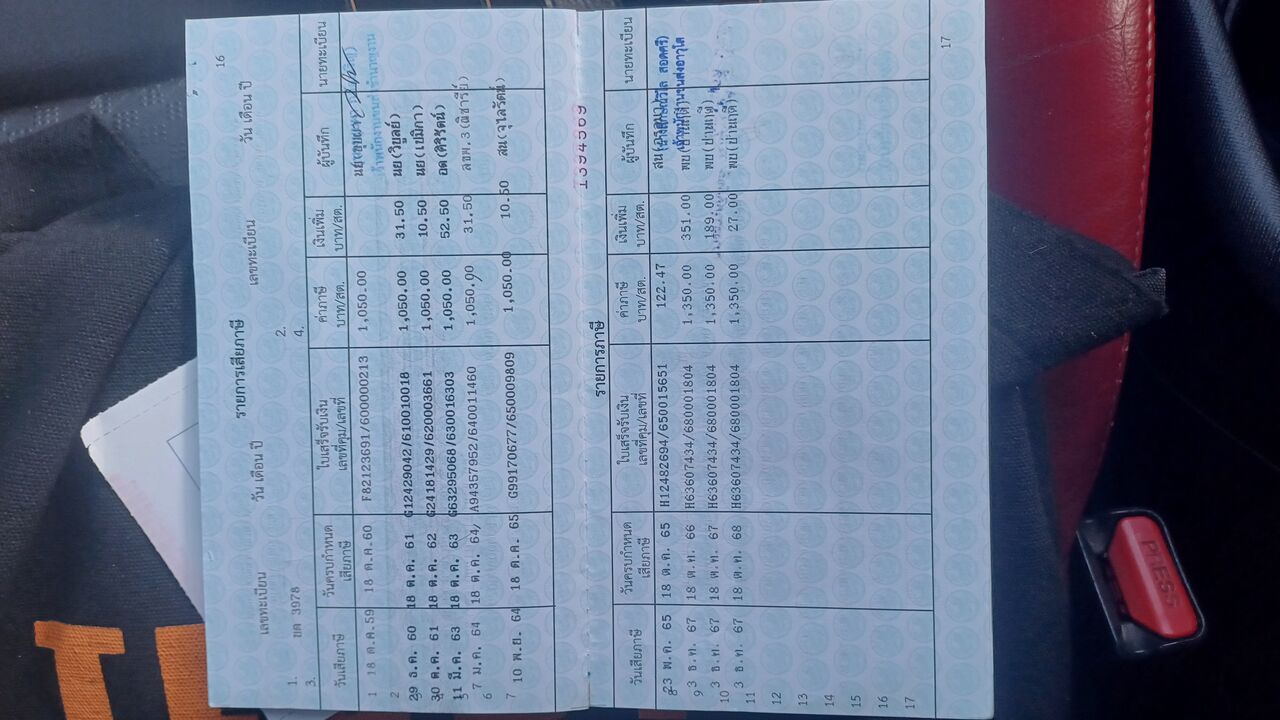 16
รายการเสียภาษี
เลขทะเบียน วัน เดือน ปี เลขทะเบียน วัน เดือน ปี
1. ยด 3978 2.
3. 4.
วันเสียภาษี วันครบกำหนดเสียภาษี ใบเสร็จรับเงินเลขที่คุม/เลขที่ ค่าภาษีบาท/สต. เงินเพิ่มบาท/สต. ผู้บันทึก นายทะเบียน
1 18 ต.ค.59 18 ต.ค.60 F82123691/600000213 1,050.00
2
29 ธ.ค. 60 18 ต.ค. 61 G12429042/610010018 1,050.00 31.50 นย(วิบูลย์)
30 ต.ค. 61 18 ต.ค. 62 G24181429/620003661 1,050.00 10.50 นย(เขมิกา)
11 มี.ค. 63 18 ต.ค. 63 G63295068/630016303 1,050.00 52.50 อต(ศิริรัตน์)
5 7 ม.ค. 64 18 ต.ค. 64 A94357952/640011460 1,050.00 31.50 ลขม.3(ณิชารีย์)
6
7 10 พ.ย. 64 18 ต.ค. 65 G99170677/650009809 1,050.00 10.50 สน(จุไลรัตน์)
1394569
รายการภาษี
วันเสียภาษี วันครบกำหนดเสียภาษี ใบเสร็จรับเงินเลขที่คุม/เลขที่ ค่าภาษีบาท/สต. เงินเพิ่มบาท/สต. ผู้บันทึก นายทะเบียน
8 23 พ.ค. 65 18 ต.ค. 65 H12482694/650015651 122.47
9 3 ธ.ค. 67 18 ต.ค. 66 H63607434/680001804 1,350.00 351.00
10 3 ธ.ค. 67 18 ต.ค. 67 H63607434/680001804 1,350.00 189.00 พย(ปานฤดี)
11 3 ธ.ค. 67 18 ต.ค. 68 H63607434/680001804 1,350.00 27.00 พย(ปานฤดี)
12
13
14
15
16
17
17
PRESS